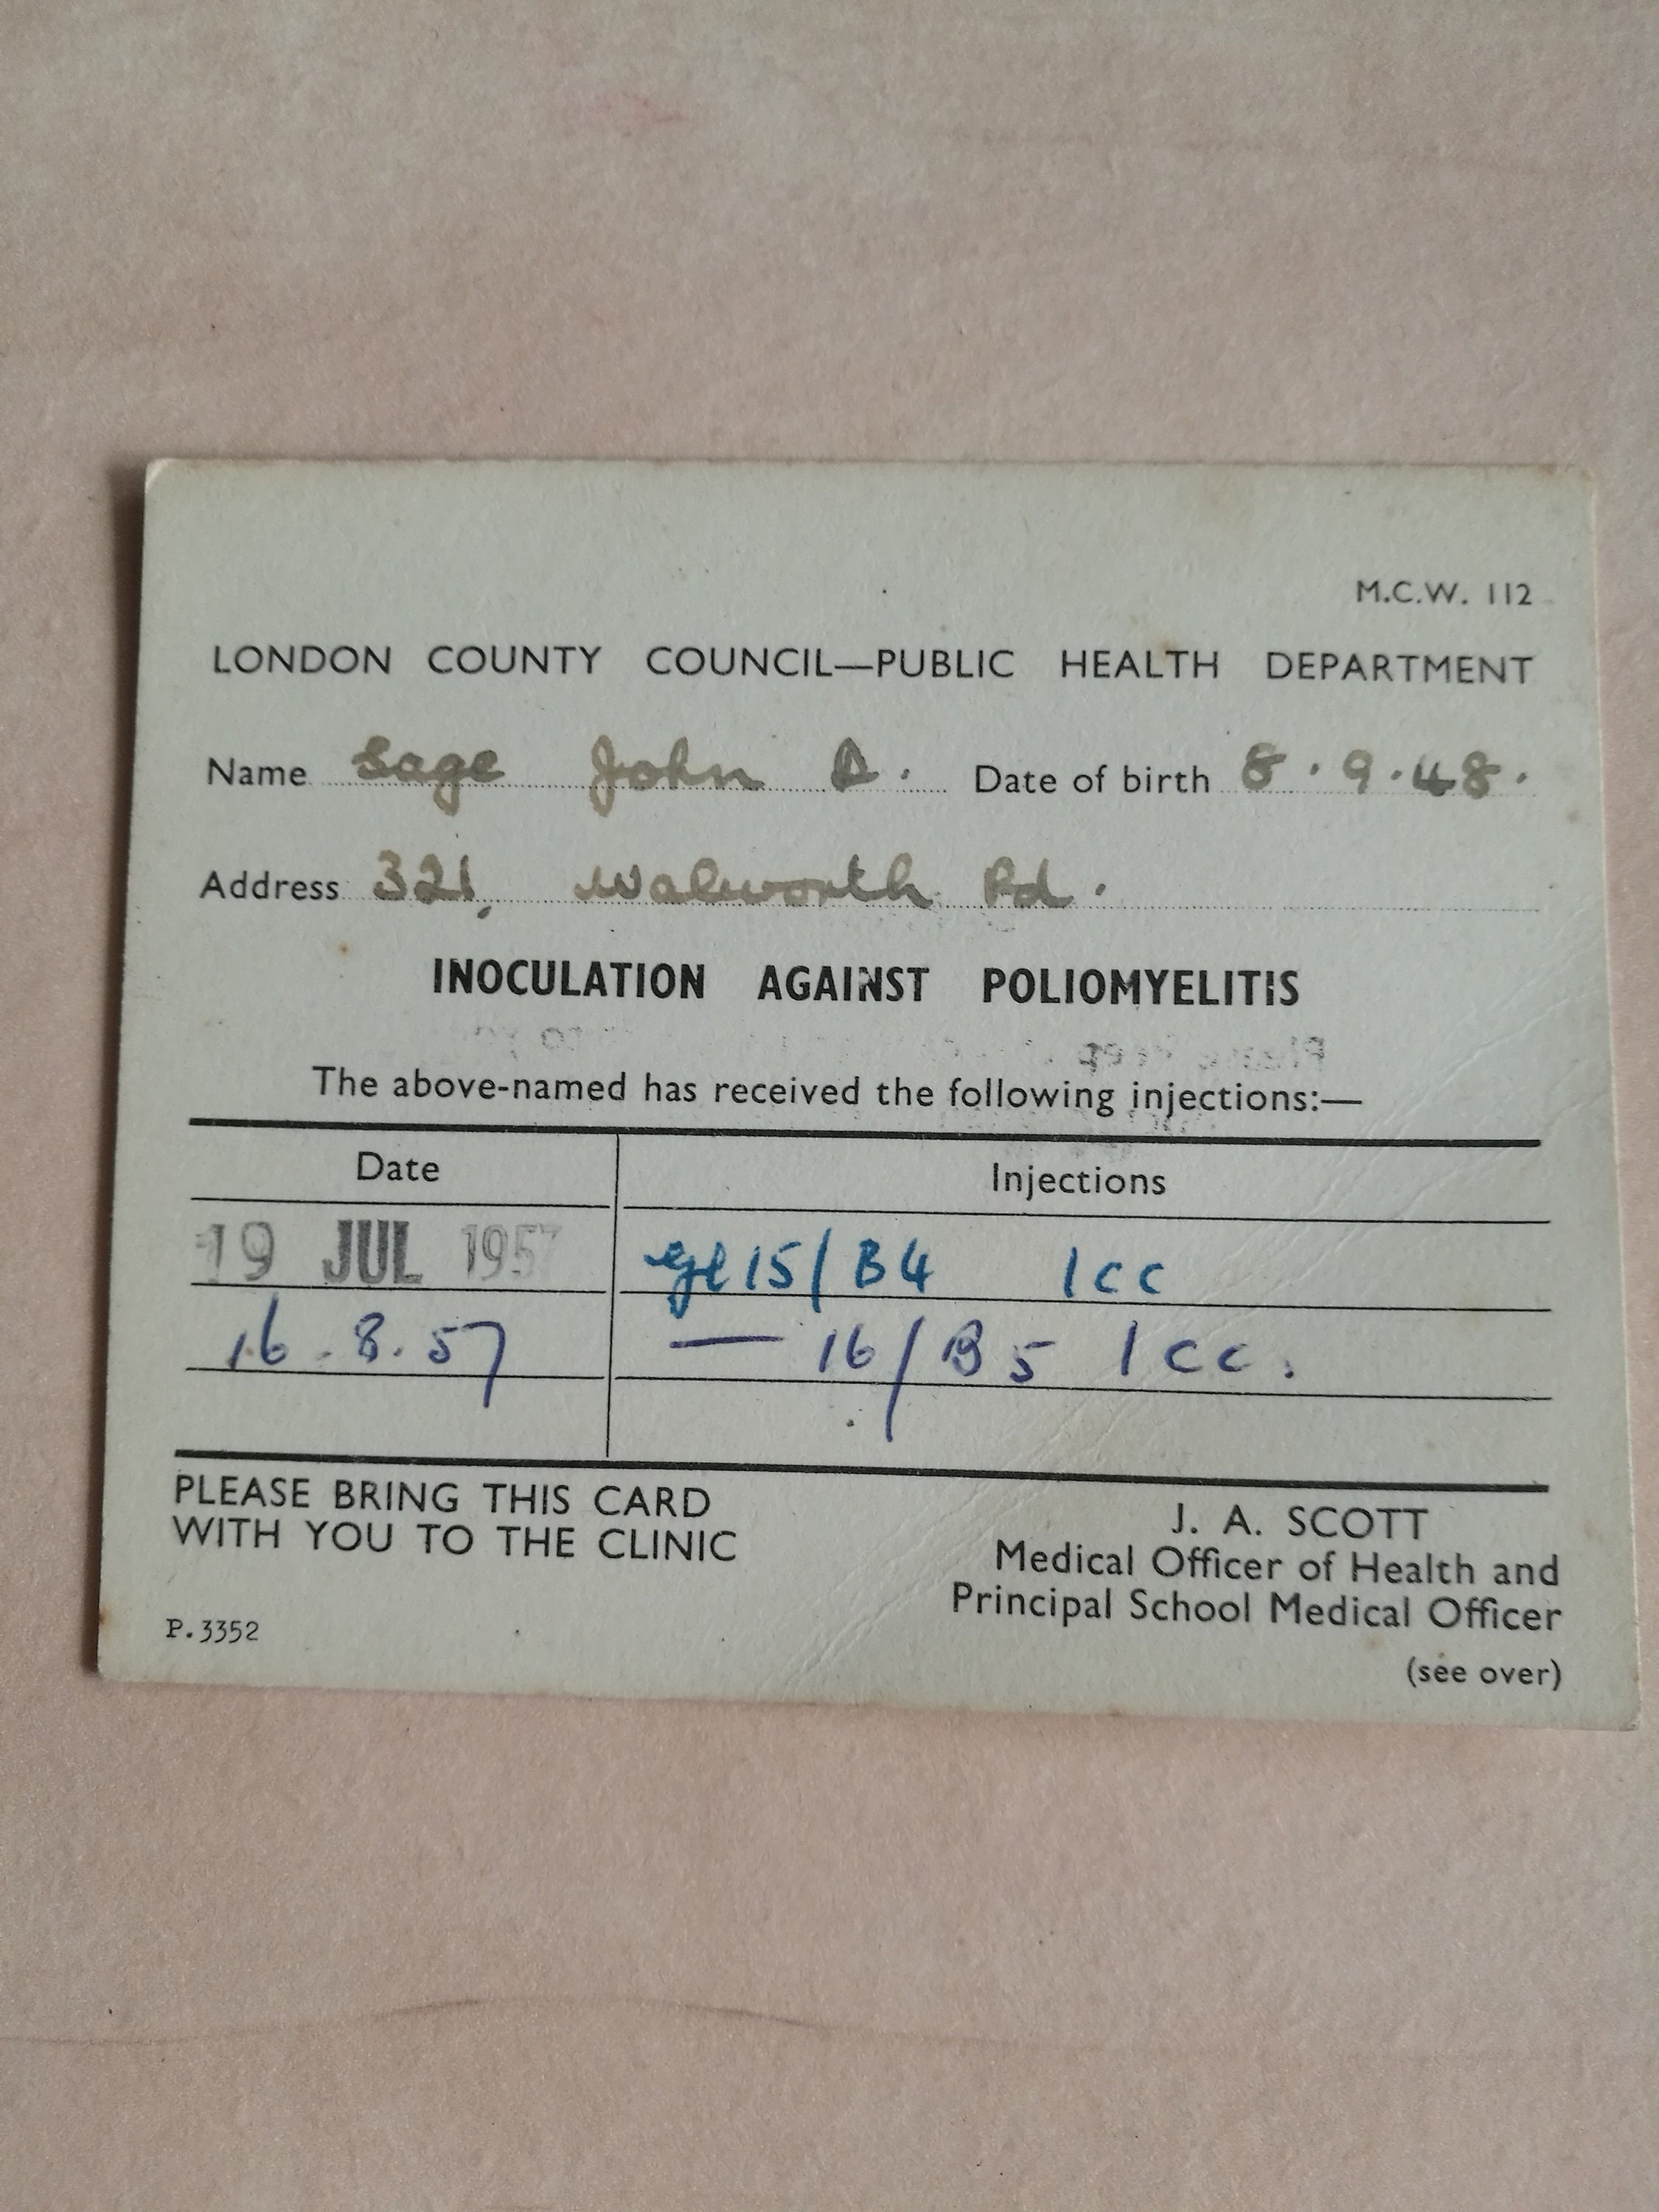 M.C.W. 112
LONDON COUNTY COUNCIL—PUBLIC HEALTH DEPARTMENT
Name Sage John D. Date of birth 8.9.48.
Address 321, Walworth Rd.
INOCULATION AGAINST POLIOMYELITIS
The above-named has received the following injections:—
Date Injections
19 JUL 1957 15/B4 1cc
16.8.57 — 16/B5 1cc.
PLEASE BRING THIS CARD
WITH YOU TO THE CLINIC
J. A. SCOTT
Medical Officer of Health and
Principal School Medical Officer
P.3352
(see over)